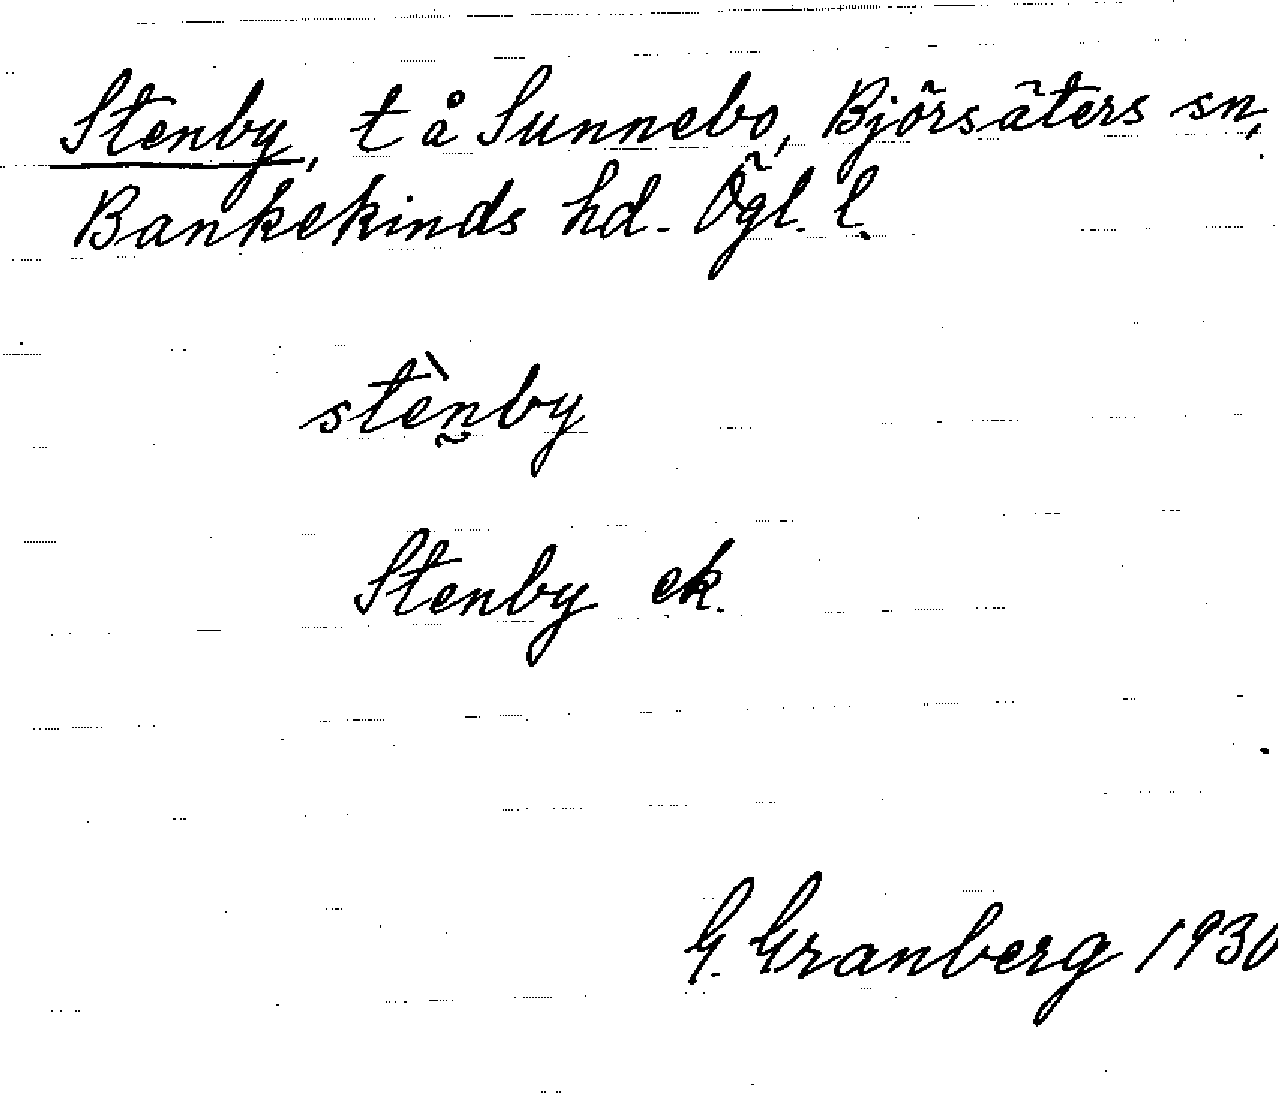 Stenby, t å Sunnebo, Björsäters sn,
Bankekinds hd. Ögl. l.
stènby
Stenby ek.
G. Granberg 1930